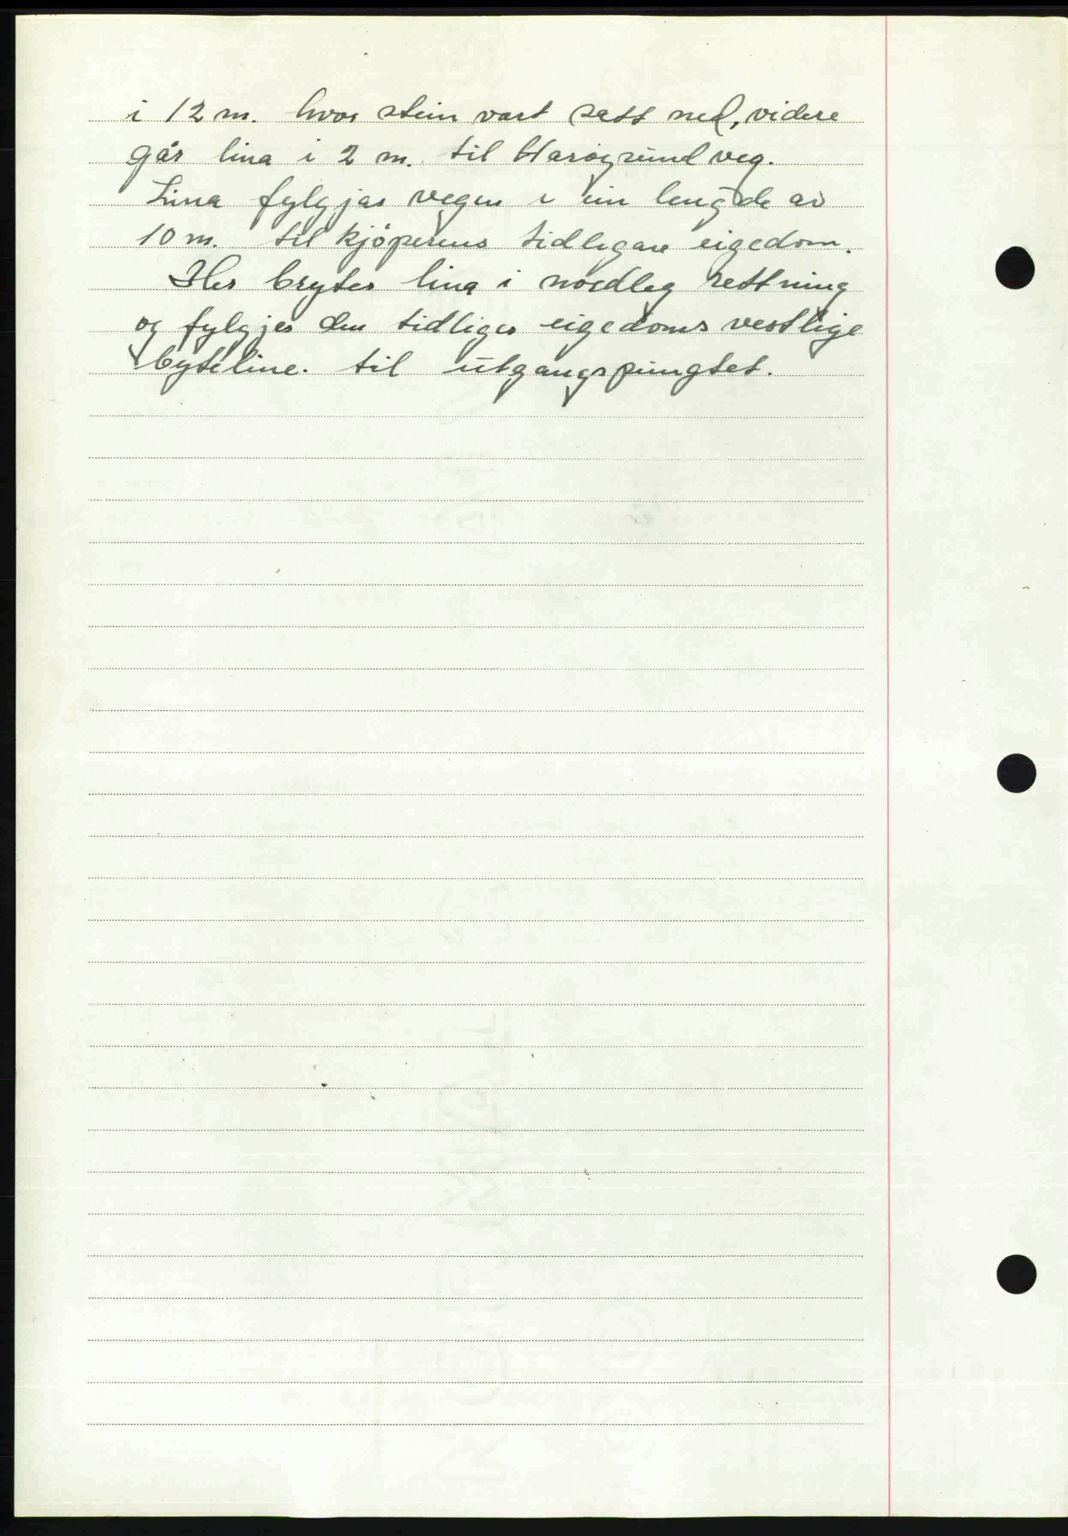 i 12 m. hvor stein vart sett ned, videre
går lina i 2 m. til Harøysund veg.
Lina fylgjar vegen i ein lengde av
10 m. til kjøperens tidlegare eigedom.
Her bryter lina i nordleg rettning
og fylgjer den tidliger eigedoms vestlige
byteline. til utgangspungtet.